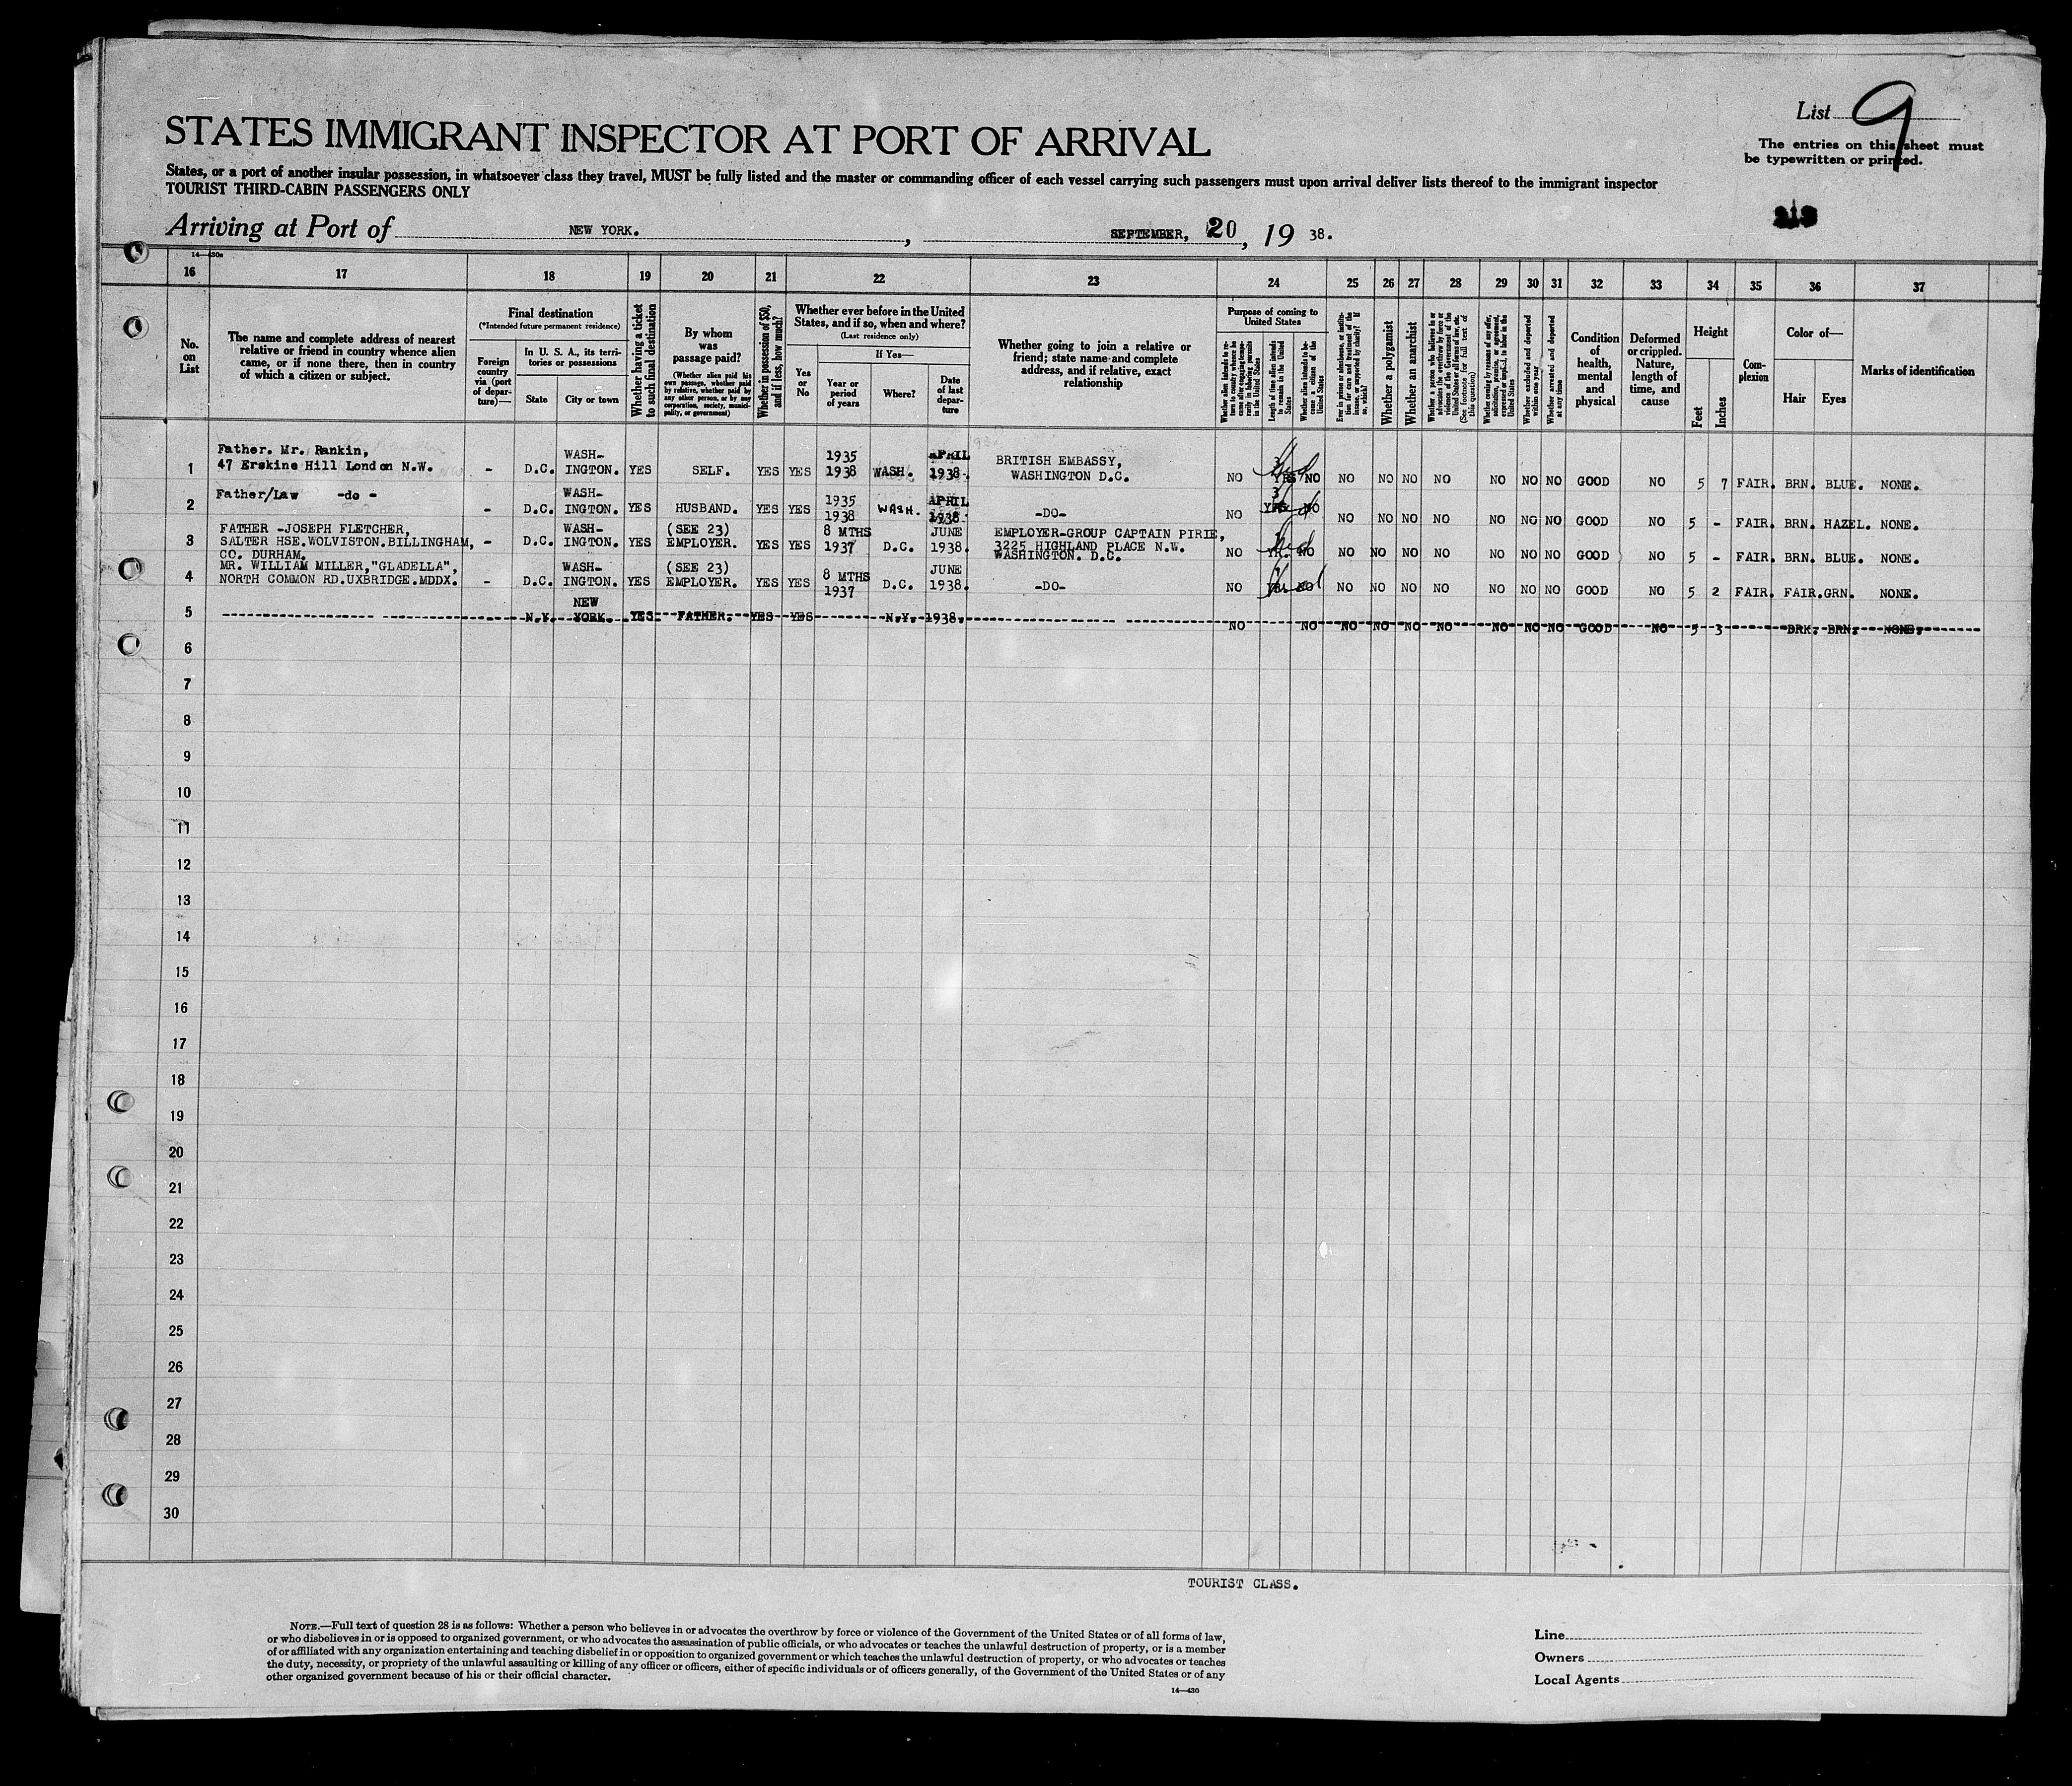 List 9
The entries on this sheet must
be typewritten or printed.
STATES IMMIGRANT INSPECTOR AT PORT OF ARRIVAL
States, or a port of another insular possession, in whatsoever class they travel, MUST be fully listed and the master or commanding officer of each vessel carrying such passengers must upon arrival deliver lists thereof to the immigrant inspector
TOURIST THIRD-CABIN PASSENGERS ONLY
Arriving at Port of NEW YORK. , SEPTEMBER, 20, 19 38.
16 17 18 19 20 21 22 23 24 25 26 27 28 29 30 31 32 33 34 35 36 37
No.
on
List
The name and complete address of nearest
relative or friend in country whence alien
came, or if none there, then in country
of which a citizen or subject.
Final destination
(*Intended future permanent residence)
Foreign
country
via (port
of depar-
ture)—
In U. S. A., its terri-
tories or possessions
State
City or town
Whether having a ticket
to such final destination
By whom
was
passage paid?
(Whether alien paid his
own passage, whether paid
by relative, whether paid by
any other person, or by any
corporation, society, munici-
pality, or government)
Whether in possession of $50,
and if less, how much?
Whether ever before in the United
States, and if so, when and where?
(Last residence only)
Yes
or
No
If Yes—
Year or
period
of years
Where?
Date
of last
depar-
ture
Whether going to join a relative or
friend; state name and complete
address, and if relative, exact
relationship
Purpose of coming to
United States
Whether alien intends to re-
turn to country whence he
came after engaging tempo-
rarily in laboring pursuits
in the United States
Length of time alien intends
to remain in the United
States
Whether alien intends to be-
come a citizen of the
United States
Ever in prison or almshouse, or institu-
tion for care and treatment of the
insane, or supported by charity? If
so, which?
Whether a polygamist
Whether an anarchist
Whether a person who believes in or
advocates the overthrow by force or
violence of the Government of the
United States or all forms of law, etc.
(See footnote for full text of
this question)
Whether coming by reasons of any offer,
solicitation, promise, or agreement,
expressed or implied, to labor in the
United States
Whether excluded and deported
within one year
Whether arrested and deported
at any time
Condition
of
health,
mental
and
physical
Deformed
or crippled.
Nature,
length of
time, and
cause
Height
Feet
Inches
Com-
plexion
Color of—
Hair
Eyes
Marks of identification
Father. Mr. Rankin, WASH- 1935 APRIL BRITISH EMBASSY,
1 47 Erskine Hill London N.W. - D.C. INGTON. YES SELF. YES YES 1938 WASH. 1938. WASHINGTON D.C. NO YES NO NO NO NO NO NO NO NO GOOD NO 5 7 FAIR. BRN. BLUE. NONE.
Father/Law -do - WASH- 1935 APRIL
2 - D.C. INGTON. YES HUSBAND. YES YES 1938 WASH. 1938. -DO- NO YES NO NO NO NO NO NO NO NO GOOD NO 5 - FAIR. BRN. HAZEL. NONE.
FATHER -JOSEPH FLETCHER, WASH- (SEE 23) 8 MTHS JUNE EMPLOYER-GROUP CAPTAIN PIRIE,
3 SALTER HSE.WOLVISTON.BILLINGHAM, - D.C. INGTON. YES EMPLOYER. YES YES 1937 D.C. 1938. 3225 HIGHLAND PLACE N.W. NO NO NO NO NO NO NO NO NO GOOD NO 5 - FAIR. BRN. BLUE. NONE.
CO. DURHAM. WASHINGTON. D.C.
MR. WILLIAM MILLER,"GLADELLA", WASH- (SEE 23) 8 MTHS JUNE
4 NORTH COMMON RD.UXBRIDGE.MDDX. - D.C. INGTON. YES EMPLOYER. YES YES 1937 D.C. 1938. -DO- NO NO NO NO NO NO NO NO NO GOOD NO 5 2 FAIR. FAIR.GRN. NONE.
NEW
5 N.Y. YORK. YES FATHER. YES YES N.Y. 1938. NO NO NO NO NO NO NO NO NO GOOD NO 5 3 DRK. BRN. NONE.
6
7
8
9
10
11
12
13
14
15
16
17
18
19
20
21
22
23
24
25
26
27
28
29
30
TOURIST CLASS.
NOTE.—Full text of question 28 is as follows: Whether a person who believes in or advocates the overthrow by force or violence of the Government of the United States or of all forms of law,
or who disbelieves in or is opposed to organized government, or who advocates the assassination of public officials, or who advocates or teaches the unlawful destruction of property, or is a member
of or affiliated with any organization entertaining and teaching disbelief in or opposition to organized government or which teaches the unlawful destruction of property, or who advocates or teaches
the duty, necessity, or propriety of the unlawful assaulting or killing of any officer or officers, either of specific individuals or of officers generally, of the Government of the United States or of any
other organized government because of his or their official character.
14—430
Line
Owners
Local Agents